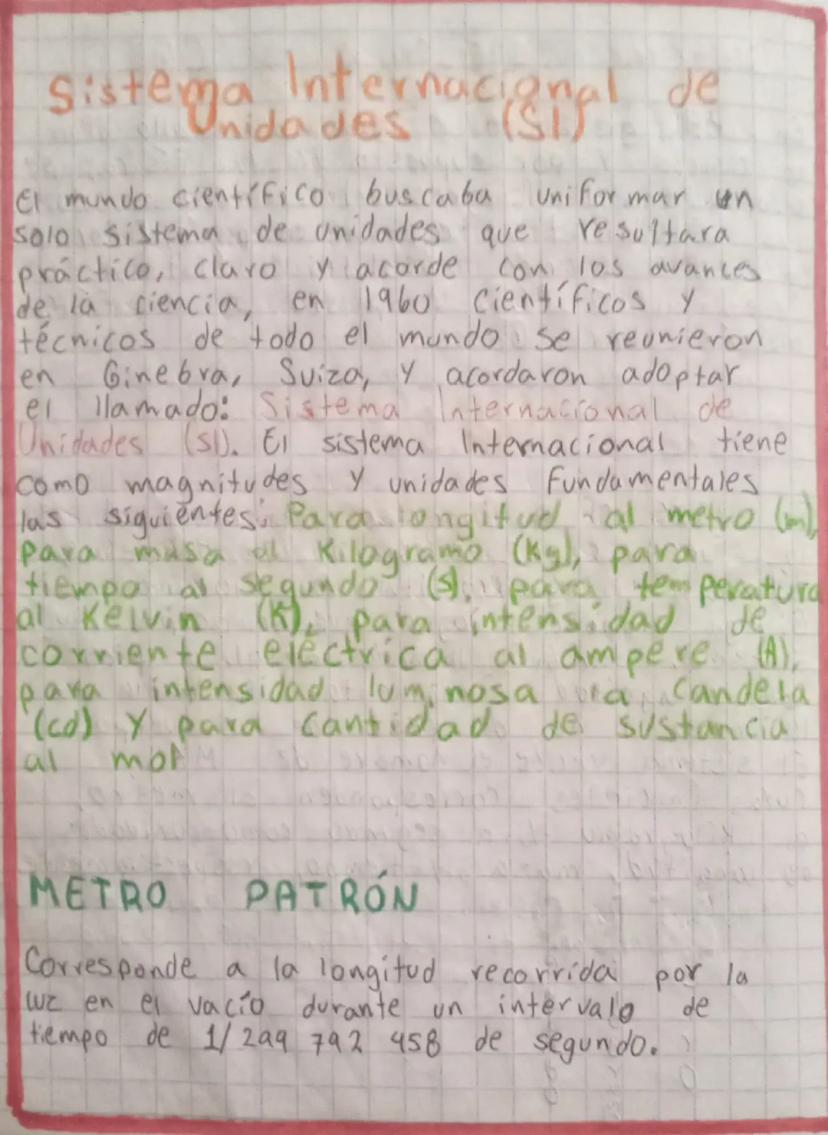 Sistema Internacional de
Unidades (SI)
El mundo científico buscaba uniformar un
solo sistema de unidades que resultara
práctico, claro y acorde con los avances
de la ciencia, en 1960 científicos y
técnicos de todo el mundo se reunieron
en Ginebra, Suiza, y acordaron adoptar
el llamado: Sistema Internacional de
Unidades (SI). El sistema Internacional tiene
como magnitudes y unidades fundamentales
las siguientes: Para longitud al metro (m),
para masa al Kilogramo (Kg), para
tiempo al segundo (s), para temperatura
al Kelvin (K), para intensidad de
corriente eléctrica al ampere (A),
para intensidad luminosa la Candela
(cd) y para cantidad de sustancia
al mol
METRO PATRÓN
Corresponde a la longitud recorrida por la
luz en el vacío durante un intervalo de
tiempo de 1/299 792 458 de segundo.